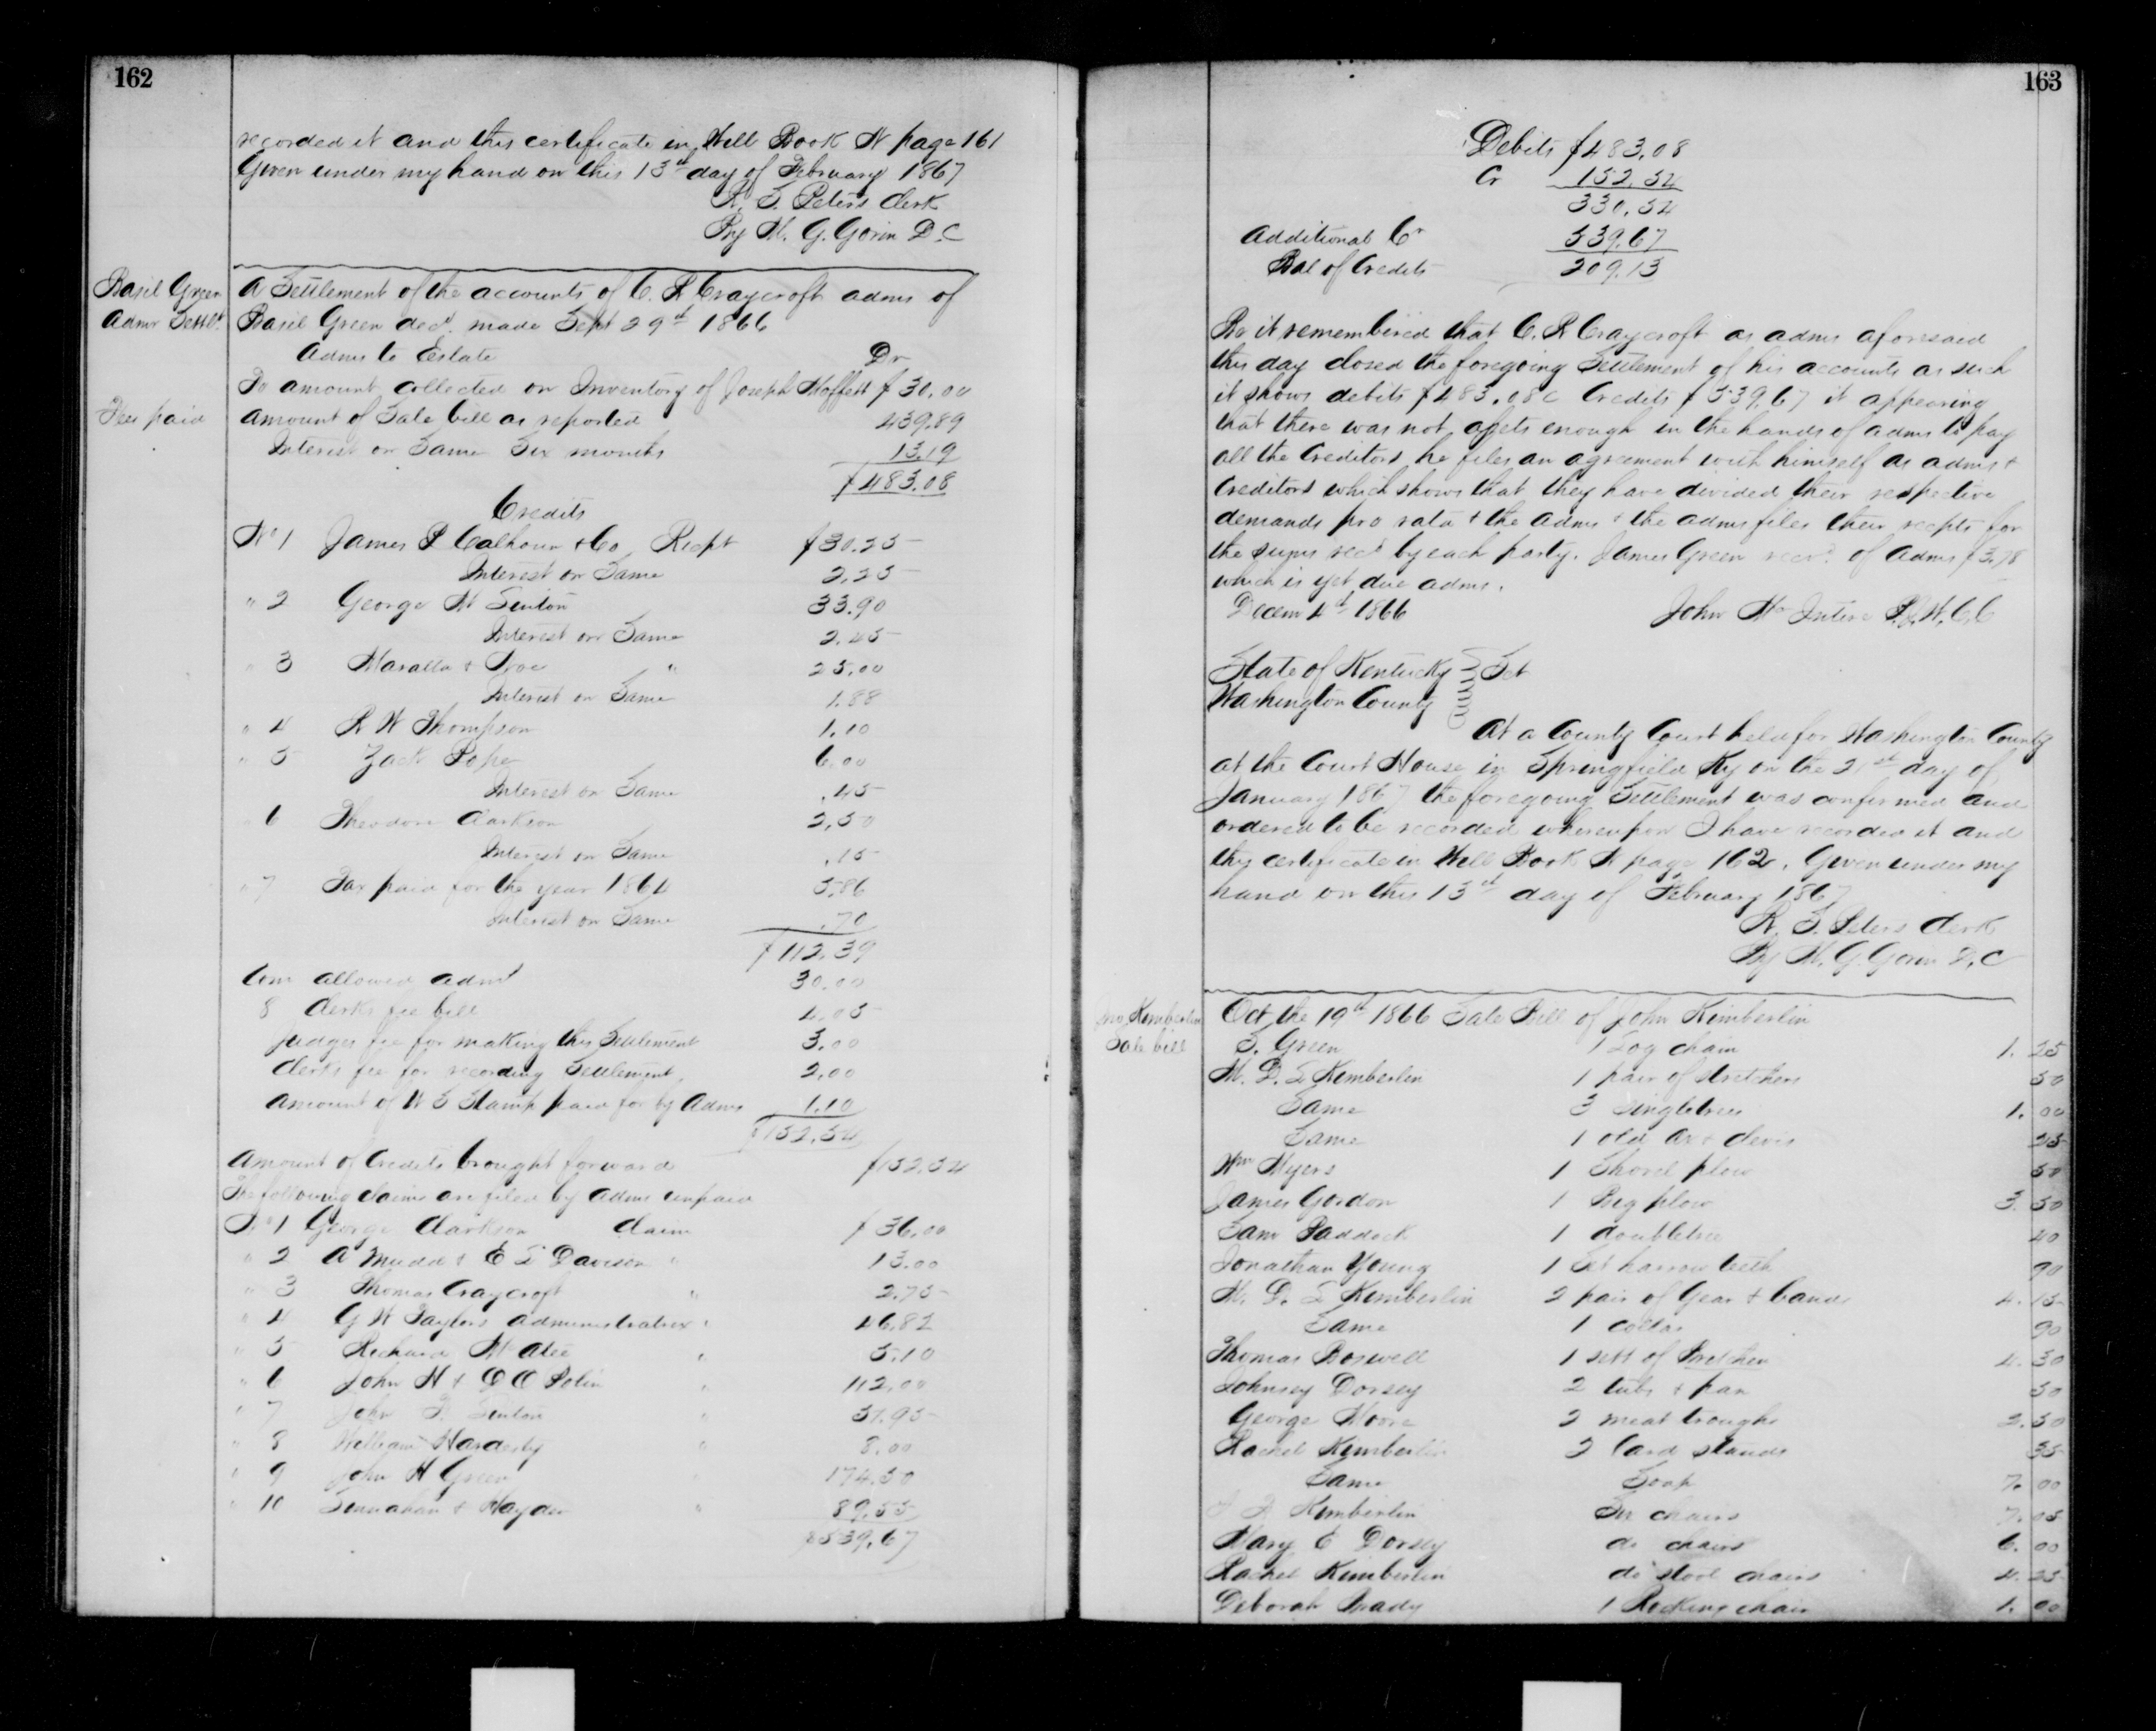 162
recorded it and this certificate in Will Book N page 161
Given under my hand on this 13th day of February 1867
R. S. Peters Clerk
By M. G. Gorin D.C
Basil Green
Admr Settlt
A Settlement of the accounts of C. R Craycroft admr of
Basil Green decd. made Sept 29th 1866
Admr to Estate Dr
To amount collected on Inventory of Joseph Moffett $30.00
Fees paid
Amount of Sale bill as reported 439.89
Interest on Same Six months 13.19
$483.08
Credits
No 1 James P Calhoun & Co Recpt $30.25
Interest on Same 2.25
" 2 George W Sinton 33.90
Interest on Same 2.45
" 3 Maralla & " 25.00
Interest on Same 1.88
" 4 R W Thompson 1.10
" 5 Zack Pope 6.00
Interest on Same .45
" 6 Theodore Clarkson 2.50
Interest on Same .15
" 7 Tax paid for the year 1864 5.86
Interest on Same .70
$112.39
Com allowed admr 30.00
8 Clerks fee bill 4.05
Judges fee for making this Settlement 3.00
Clerks fee for recording Settlement 2.00
Amount of U S Stamp paid for by Admr 1.10
$152.54
Amount of Credits brought forward $152.54
The following claims are filed by admr unpaid
No 1 George Clarkson Claim $36.00
" 2 A Mudd & E L Davison " 13.00
" 3 Thomas Craycroft " 2.75
" 4 G W Taylors administratrix " 46.82
" 5 Richard McAtee " 5.10
" 6 John H & D O Polin " 112.00
" 7 John Sinton " 51.95
" 8 William Hardesty " 8.00
" 9 John H Green " 174.50
" 10 & Hayden " 89.55
$539.67
163
Debits $483.08
Cr 152.54
330.54
Additional Cr 539.67
Bal of Credits 209.13
Be it remembered that C. R Craycroft as admr aforesaid
this day closed the foregoing Settlement of his accounts as such
it shows debits $483.08c Credits $539.67 it appearing
that there was not assets enough in the hands of admr to pay
all the Creditors he files an agreement with himself as admr &
Creditors which shows that they have divided their respective
demands pro rata & the admr & the admr files their recpts for
the sums recd by each party. James Green recd. of admr $3.78
which is yet due admr.
Decem 4th 1866 John McIntire P.J.W.C.C
State of Kentucky } Sct
Washington County
At a County Court held for Washington County
at the Court House in Springfield Ky on the 21st day of
January 1867 the foregoing Settlement was confirmed and
ordered to be recorded whereupon I have recorded it and
this certificate in Will Book N page 162. Given under my
hand on this 13th day of February 1867
R. S. Peters Clerk
By M. G. Gorin D.C
Jno Kimberlin
Sale bill
Oct the 19th 1866 Sale Bill of John Kimberlin
S. Green 1 Log chain 1.25
M. D. L Kimberlin 1 pair of Stretchers 50
Same 3 singletrees 1.00
Same 1 old ax & clevis 25
Wm Myers 1 Shovel plow 50
James Gordon 1 Big plow 3.50
Sam Paddock 1 doubletree 40
Jonathan Young 1 Set harrow teeth 90
M. D. L Kimberlin 2 pair of Gear & bands 4.15
Same 1 collar 90
Thomas Boswell 1 sett of Britchen 4.30
Johnsey Dorsey 2 tubs & pan 50
George Moore 2 meat troughs 2.50
Rachel Kimberlin 2 lard stands 35
Same Soap 7.00
Kimberlin Six chairs 7.05
Mary E Dorsey do chairs 6.00
Rachel Kimberlin do stool chairs 4.25
Deborah Brady 1 Rocking chair 1.00